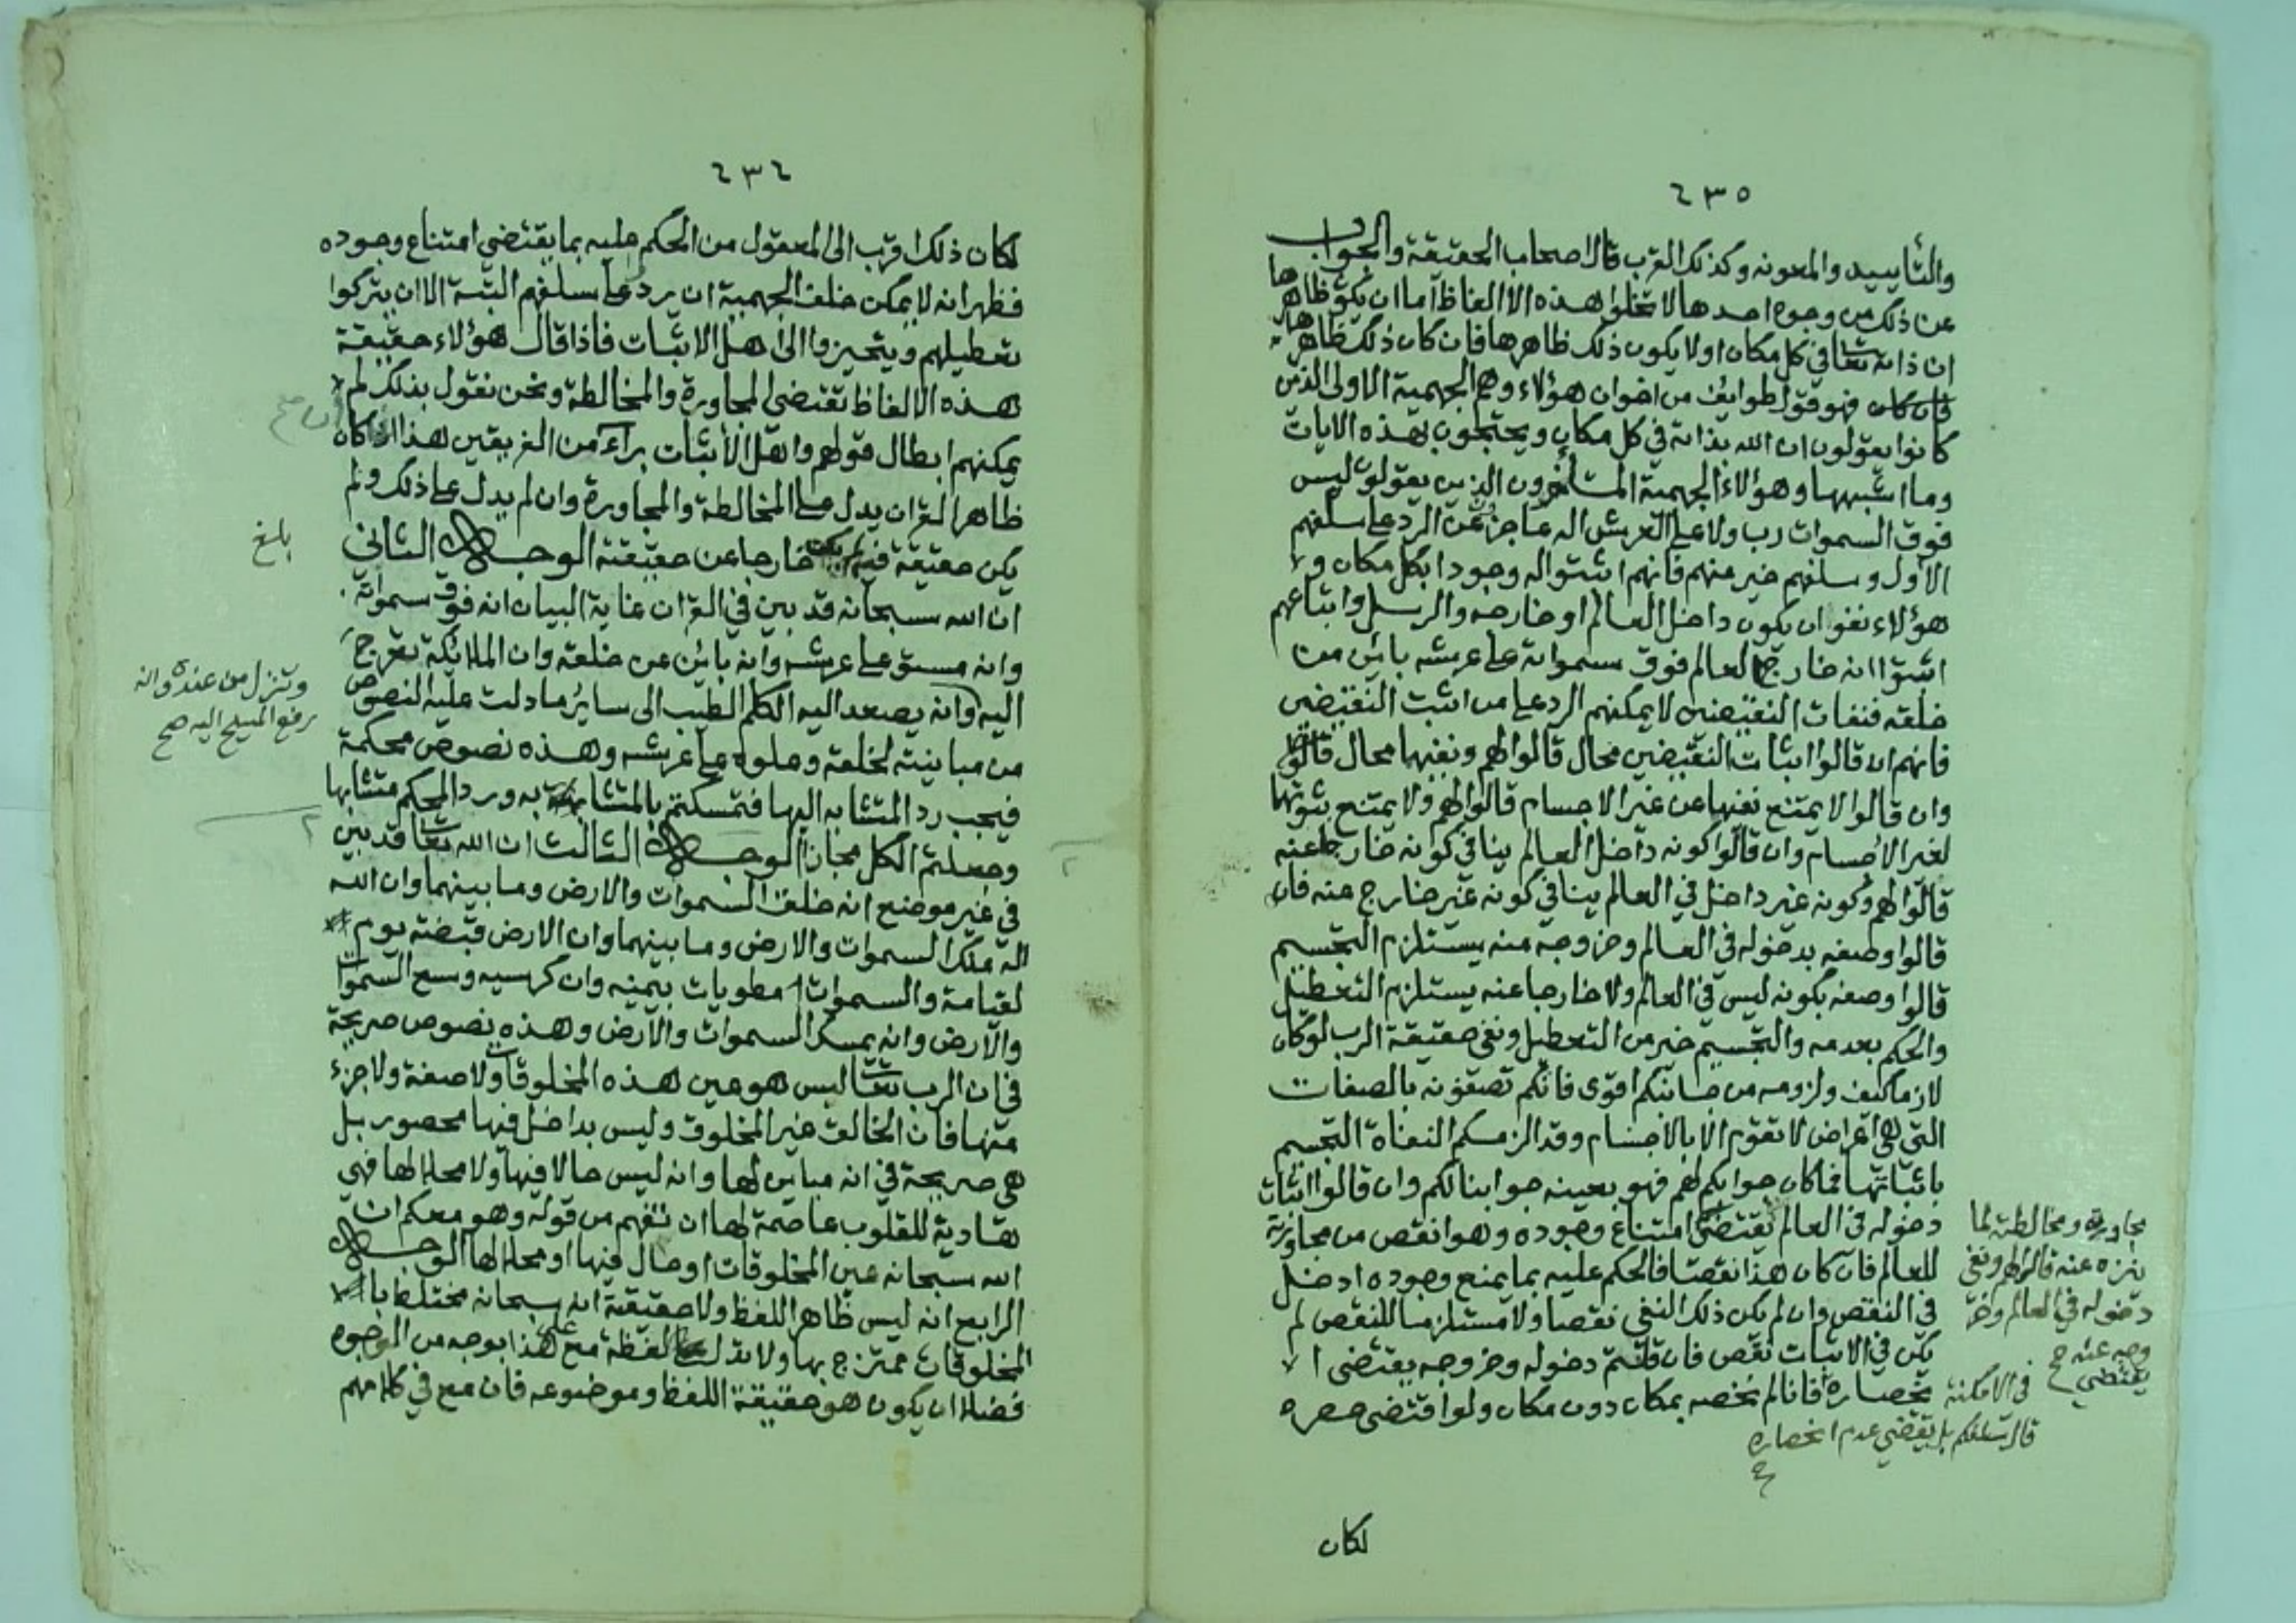 ٤٣٥
والتأييد والمعونه وكذلك القرب قال اصحاب الحقيقة والجواب
عن ذلك من وجوه احدها لا تخلوا هذه الالفاظ اما ان يكون ظاهرها
ان ذاته تعا في كل مكان او لا يكون ذلك ظاهرها فان كان ذلك ظاهرها
فان كان فهو قول طوايف من اخوان هؤلاء وهم الجهمية الاولى الذين
كانوا يقولون ان الله بذاته في كل مكان ويحتجون بهذه الايات
وما اشبهها وهؤلاء الجهمية المتأخرون الذين يقولون ليس
فوق السموات رب ولا على العرش اله عاجزون عن الرد على سلفهم
الاول وسلفهم خير منهم فانهم اثبتوا له وجودا بكل مكان و
هؤلاء نفوا ان يكون داخل العالم او خارجه والرسل واتباعهم
اثبتوا انه خارج العالم فوق سمواته على عرشه بائن من
خلقه فنفات النقيضين لا يمكنهم الرد على من اثبت النقيضين
فانهم ان قالوا اثبات النقيضين محال قالوا لهم ونفيهما محال قالوا
وان قالوا لا يمتنع نفيهما عن غير الاجسام قالوا لهم ولا يمتنع ثبوتهما
لغير الاجسام وان قالوا كونه داخل العالم ينافي كونه خارجا عنه
قالوا لهم وكونه غير داخل في العالم ينافي كونه غير خارج عنه فان
قالوا وصفه بدخوله في العالم وخروجه منه يستلزم التجسيم
قالوا وصفه بكونه ليس في العالم ولا خارجا عنه يستلزم التعطيل
والحكم بعدمه والتجسيم خير من التعطيل ونفي حقيقة الرب لو كان
لازما كيف ولزومه من جانبكم اقوى فانكم تصفونه بالصفات
التي هي اعراض لا تقوم الا بالاجسام وقد الزمكم النفاة التجسيم
باثباتها فما كان جوابكم لهم فهو بعينه جوابنا لكم وان قالوا اثبات
دخوله في العالم يقتضي امتناع وجوده وهو انقص من مجاورته
للعالم فان كان هذا نقصا فالحكم عليه بما يمنع وجوده ادخل
في النقص وان لم يكن ذلك النفي نقصا ولا مستلزما للنقص لم
يكن في الاثبات نقص فان قلتم دخوله وخروجه يقتضى ا
نحصاره فانا لم نخصه بمكان دون مكان ولو اقتضى حصره
مجاورته ومخالطته لما
ينزه عنه قالوا لهم ونفي
دخوله في العالم وخر
وجه عنه صح
يقتضي
في الامكنة
قال سلفكم بل يقتضي عدم انحصاره
لكان
٤٣٤
لكان ذلك اقرب الى المعقول من الحكم عليه بما يقتضي امتناع وجوده
فظهر انه لا يمكن خلف الجهمية ان يرد على سلفهم البتة الا ان يتركوا
تعطيلهم ويتحيزوا الى اهل الاثبات فاذا قال هؤلاء حقيقة
هذه الالفاظ تقتضي المجاورة والمخالطة ونحن نقول بذلك لم
يمكنهم ابطال قولهم واهل الاثبات براء من الفريقين هذا ان كان
ظاهر القران يدل على المخالطة والمجاورة وان لم يدل على ذلك ولم
يكن حقيقة فيه لم يكن خارجا عن حقيقته الوجه الثاني
ان الله سبحانه قد بين في القران غاية البيان انه فوق سمواته
وانه مستو على عرشه وانه بائن عن خلقه وان الملائكة تعرج
اليه وانه يصعد اليه الكلم الطيب الى سائر ما دلت عليه النصوص
من مباينته لخلقه وعلوه على عرشه وهذه نصوص محكمة
فيجب رد المتشابه اليها فتمسكتم بالمتشابه به ورد المحكم متشابها
وجعلتم الكل مجازا الوجه الثالث ان الله تعا قد بين
في غير موضع انه خلق السموات والارض وما بينهما وان الله
له ملك السموات والارض وما بينهما وان الارض قبضته يوم
لقيامة والسموات مطويات بيمينه وان كرسيه وسع السموات
والارض وانه يمسك السموات والارض وهذه نصوص صريحة
في ان الرب تعا ليس هو عين هذه المخلوقات ولا صفة ولا جزء
منها فان الخالق غير المخلوق وليس بداخل فيها محصور بل
هي صريحة في انه مباين لها وانه ليس حالا فيها ولا محلا لها فهي
هادية للقلوب عاصمة لها ان تفهم من قوله وهو معكم ان
الله سبحانه عين المخلوقات او حال فيها او محلا لها الوجه
الرابع انه ليس ظاهر اللفظ ولا حقيقة انه سبحانه مختلط با
لمخلوقات ممتزج بها ولا تدل لفظة مع على هذا بوجه من الوجوه
فضلا ان يكون هو حقيقة اللفظ وموضوعه فان مع في كلامهم
بلغ
وتنزل من عنده وانه
رفع المسيح اليه صح